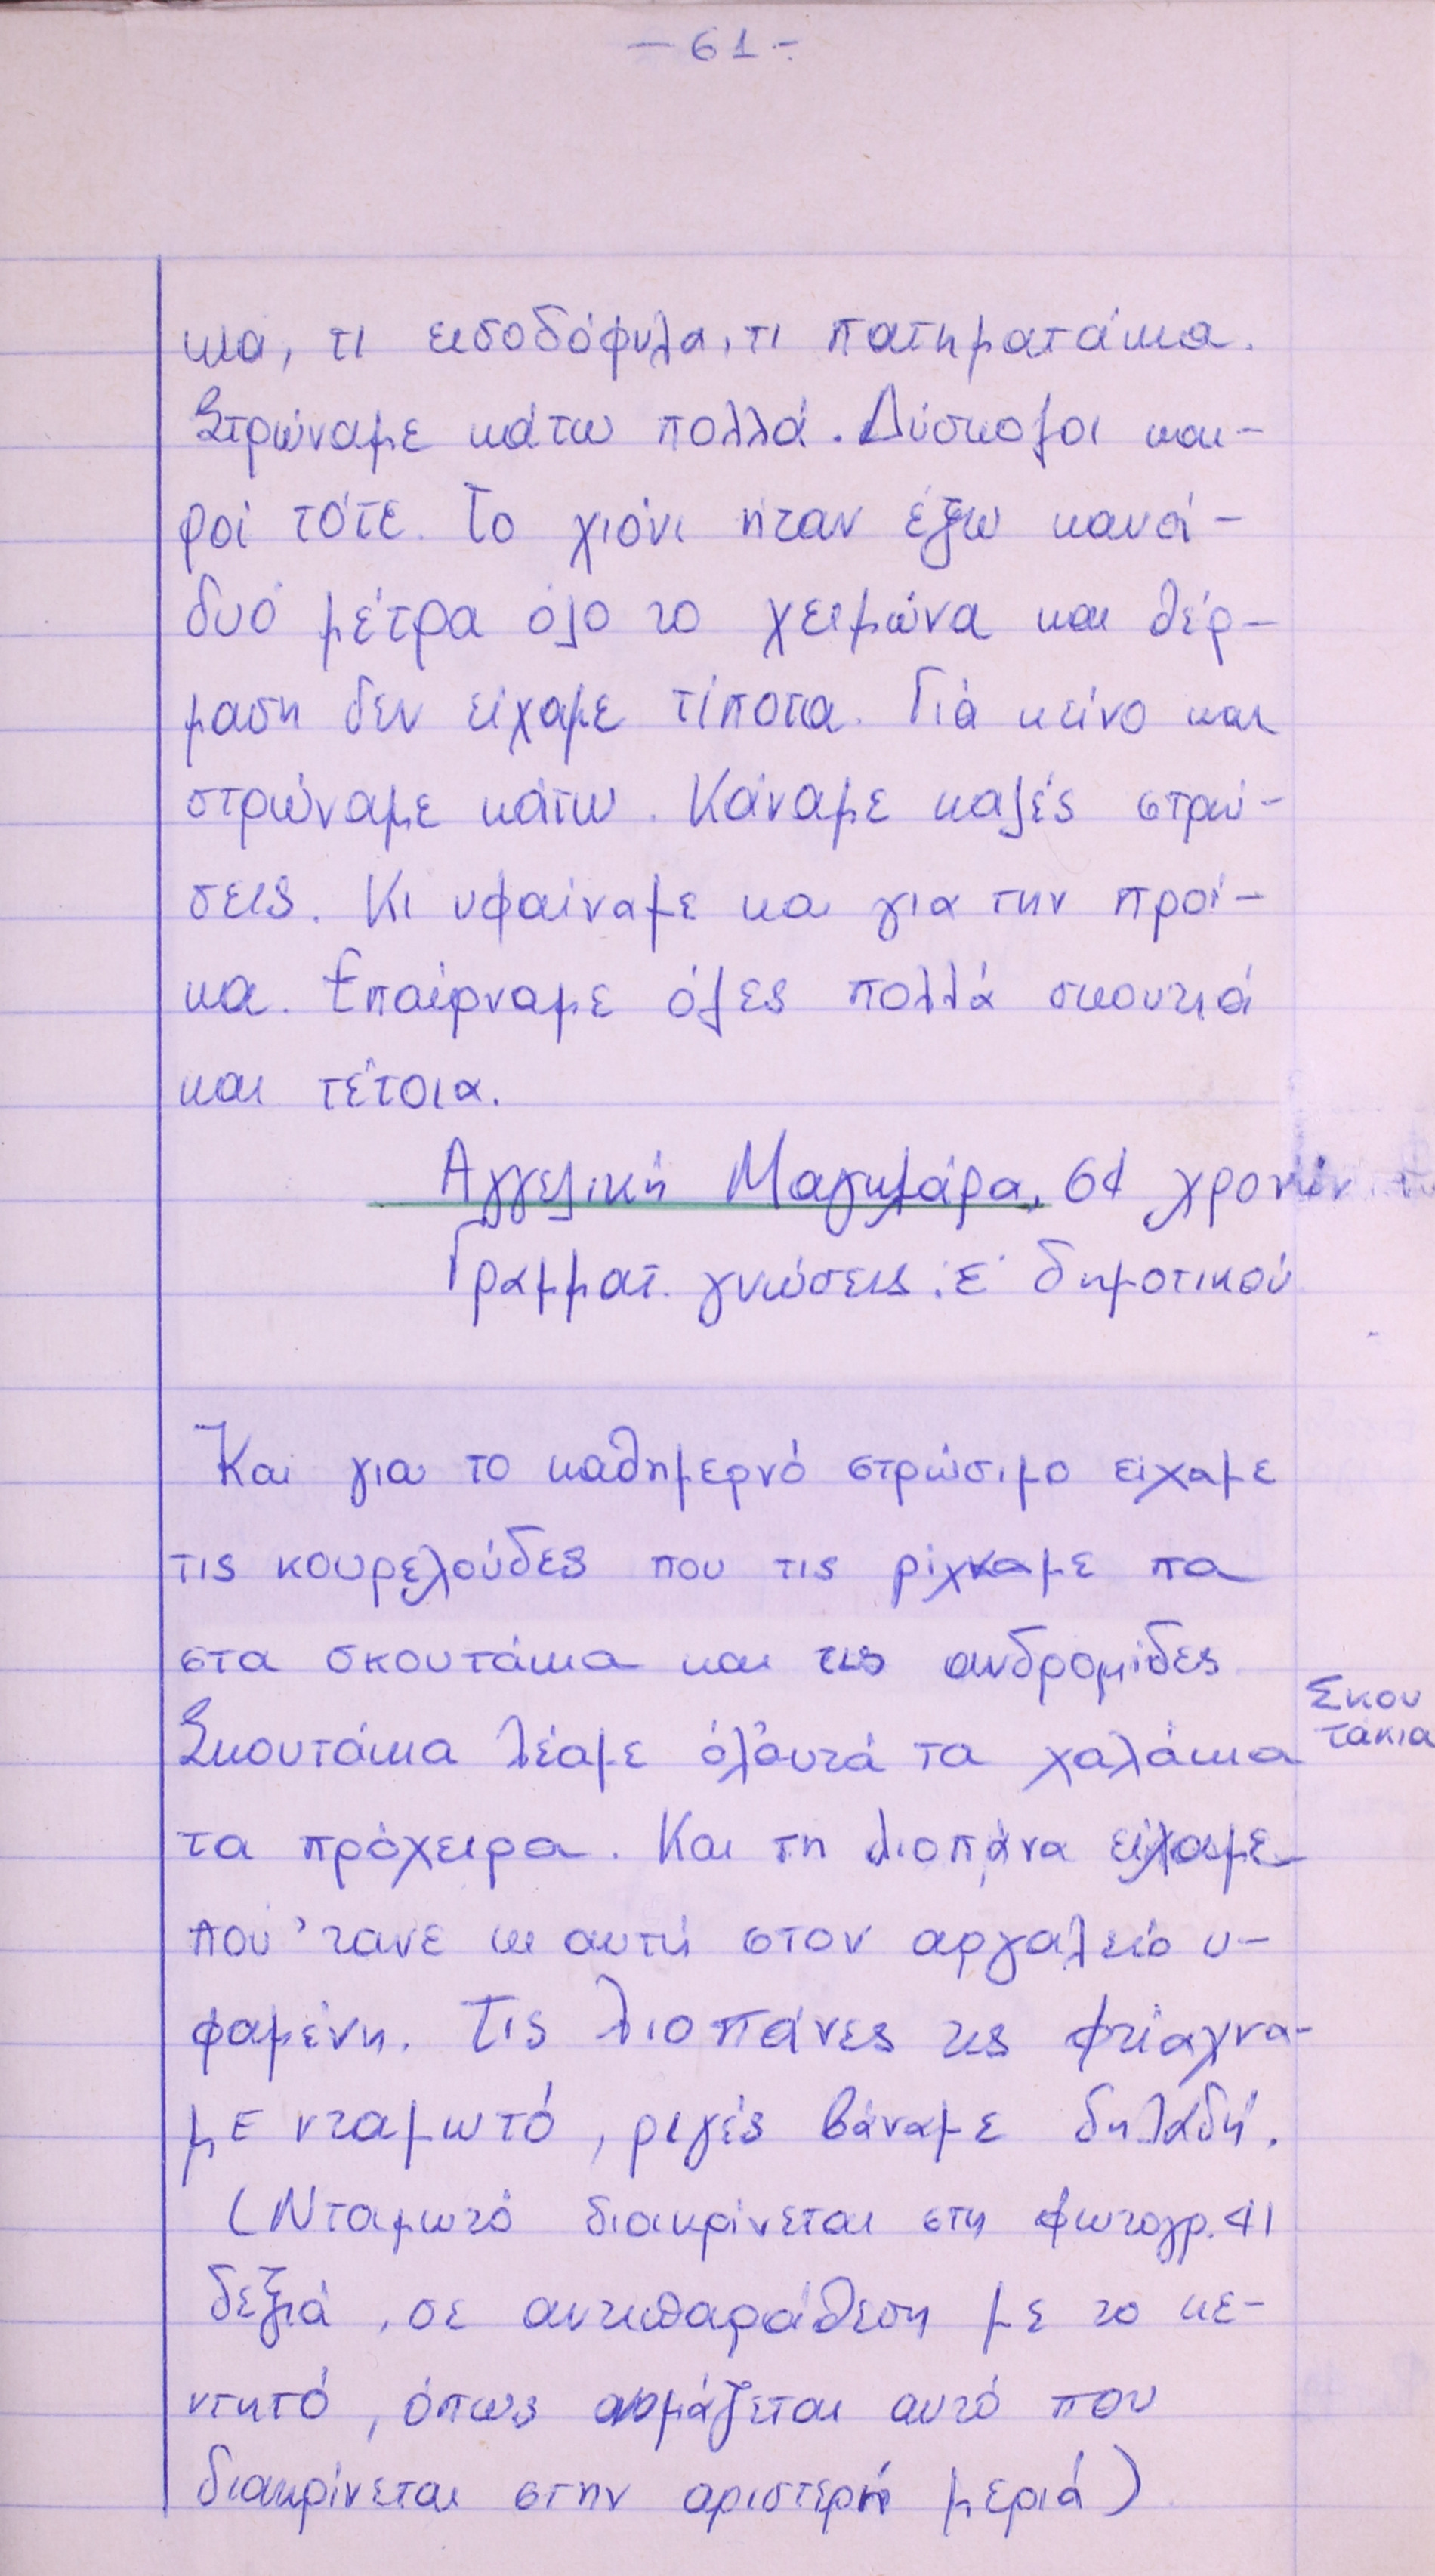 -61-
κια, τι εισοδόφυλα, τι πατηματάκια.
Στρώναμε κάτω πολλά. Δύσκολοι και-
ροί τότε. Το χιόνι ήταν έξω κανά-
δυό μέτρα όλο το χειμώνα και θέρ-
μαση δεν είχαμε τίποτα. Γιά κείνο και
στρώναμε κάτω. Κάναμε καλές στρώ-
σεις. Κι υφαίναμε και για την προί-
κα. Επαίρναμε όλες πολλά σκουτιά
και τέτοια.
Αγγελική 61 χρονών
Γραμματ. γνώσεις: Ε' δημοτικού
Και για το καθημερνό στρώσιμο είχαμε
τις κουρελούδες που τις ρίχναμε πα
στα σκουτάκια και τις ανδρομίδες
Σκουτάκια λέαμε όλ'αυτά τα χαλάκια
Σκου
τάκια
τα πρόχειρα. Και τη λιοπάνα είχαμε
πού 'τανε κι αυτή στον αργαλειό υ-
φαμένη. Τις λιοπάνες τις φτιάχνα-
με νταμωτό, ριγές βάναμε δηλαδή.
(Νταμωτό διακρίνεται στη φωτογρ. 41
δεξιά, σε αντιπαράθεση με το κε-
ντητό, όπως ονομάζεται αυτό που
διακρίνεται στην αριστερή μεριά)